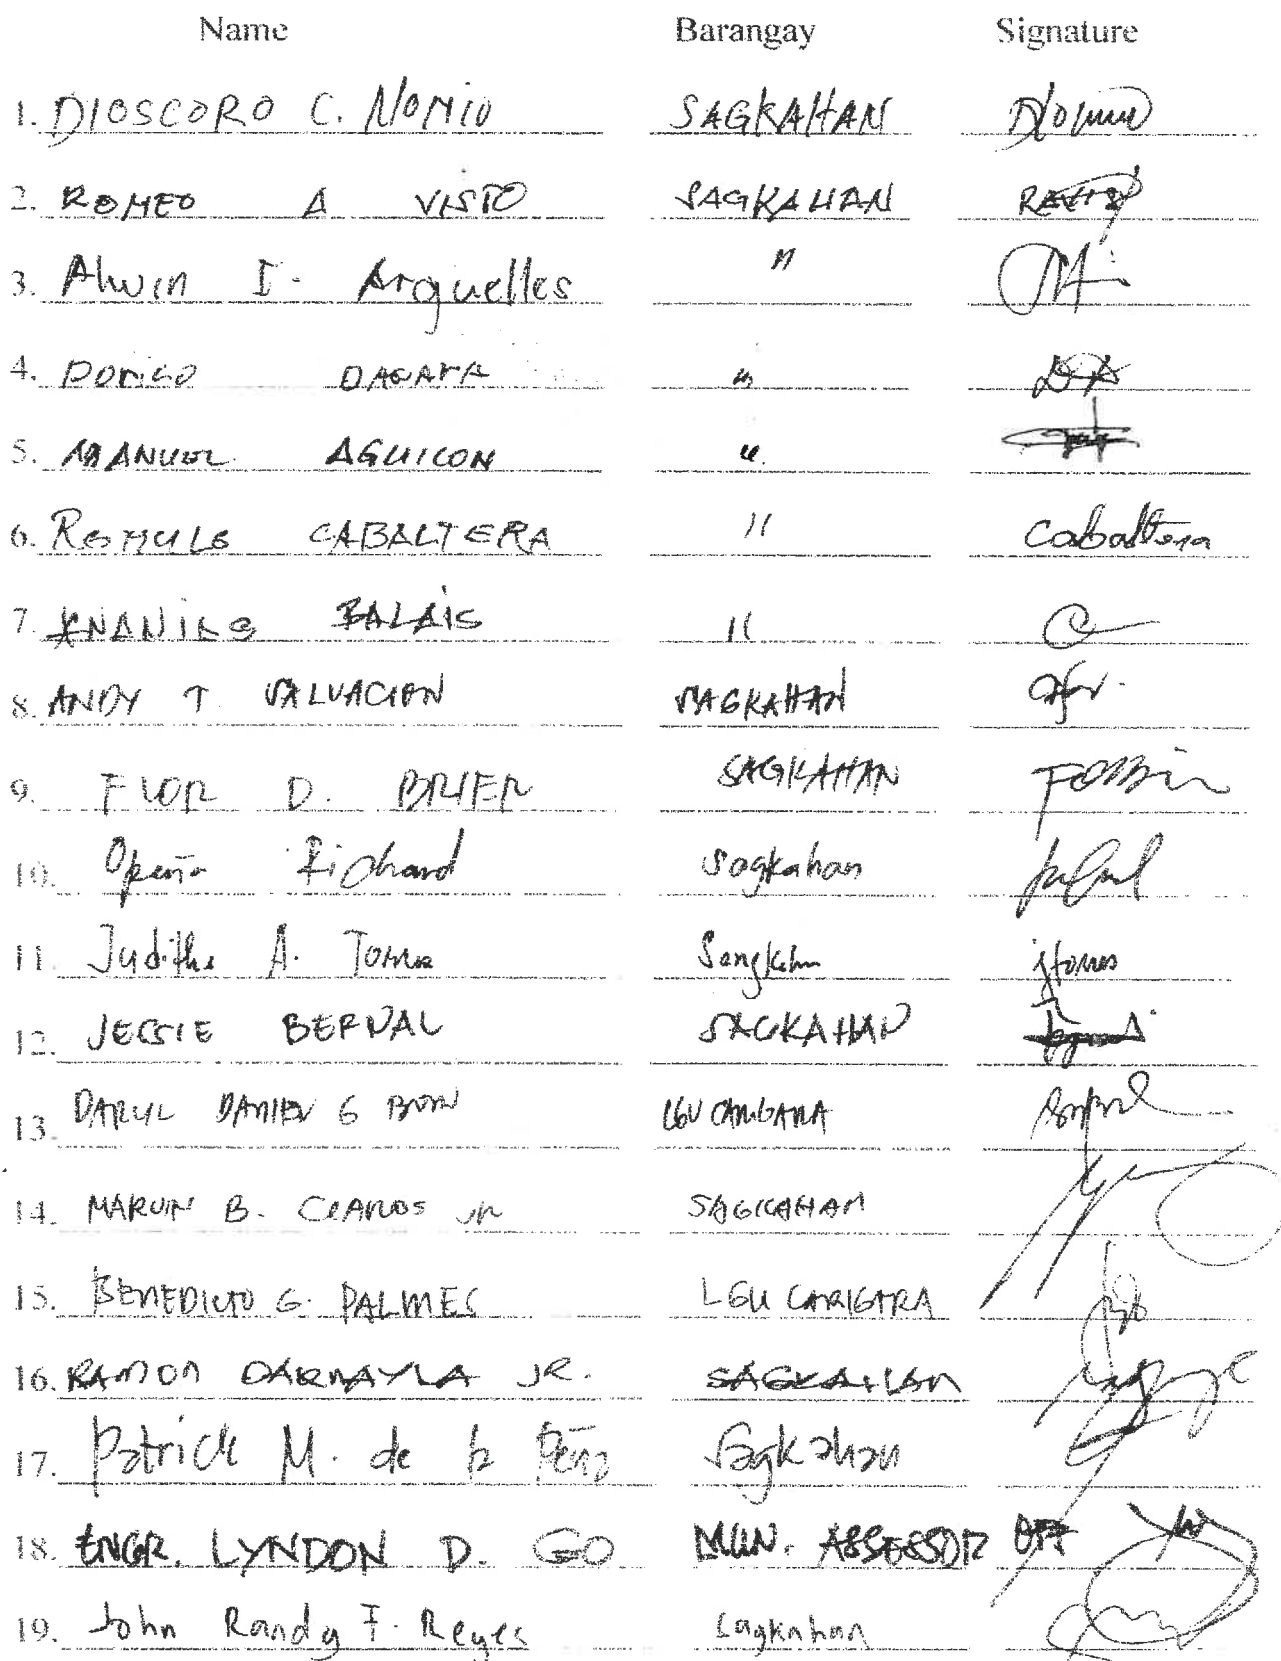 Name Barangay Signature
1. DIOSCORO C. NOMIO SAGKAHAN
2. ROMEO A VISTO SAGKAHAN
3. Alwin I. Arguelles "
4. DAGAMA "
5. MANUEL AGUICON "
6. ROMULO CABALTERA " Cabaltera
7. BALAIS "
8. ANDY T VALUACION SAGKAHAN
9. FLOR D. BRIER SAGKAHAN
10. Opeña Richard Sagkahan
11. Judithe A. Torres Sangkahn jtorres
12. JESSIE BERNAL SAGKAHAN
13. DARYL DANIEL G LGU CARIGARA
14. MARVIN B. JR SAGKAHAN
15. BENEDICTO G. PALMES LGU CARIGARA
16. RAMON DARNAYLA JR. SAGKAHAN
17. Patrick M. de la Peña Sagkahan
18. ENGR. LYNDON D. GO MUN. ASSESSOR OFF
19. John Randy F. Reyes Sagkahan